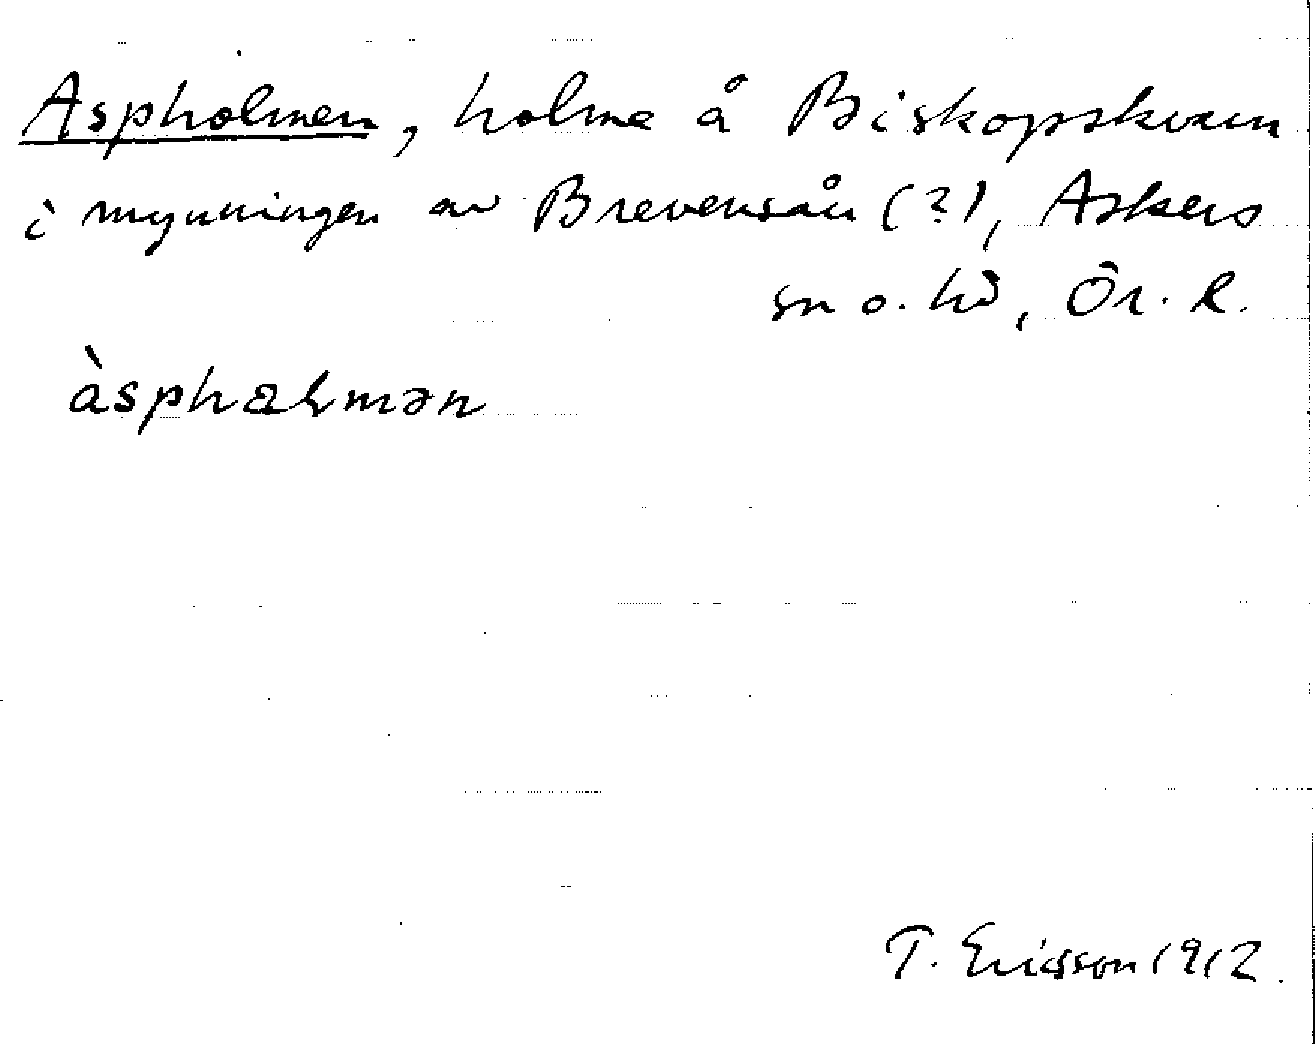 Aspholmen, holme å Biskopskvarn
i mynningen av Brevensån (?), Askers
sn o. hd, Ör. l.
àsphɷɭmən
T. Ericsson 1912.